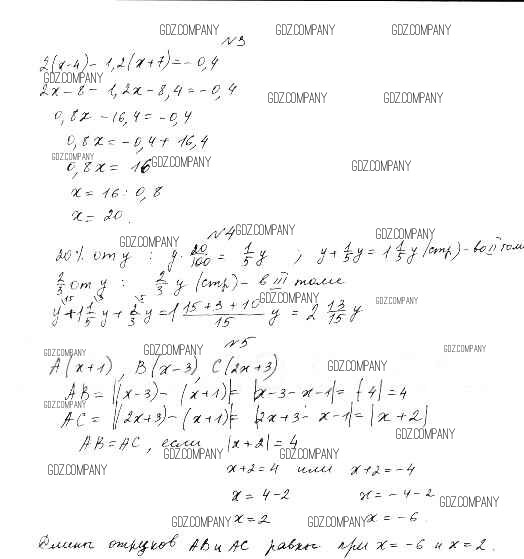 GDZ.COMPANY GDZ.COMPANY GDZ.COMPANY
№3
2(x-4) - 1,2(x+7) = -0,4
GDZ.COMPANY
2x - 8 - 1,2x - 8,4 = -0,4
GDZ.COMPANY GDZ.COMPANY
0,8x - 16,4 = -0,4
0,8x = -0,4 + 16,4
GDZ.COMPANY GDZ.COMPANY GDZ.COMPANY
0,8x = 16
x = 16 : 0,8
x = 20.
№4 GDZ.COMPANY
GDZ.COMPANY GDZ.COMPANY
20% от y : y · 20/100 = 1/5 y ; y + 1/5 y = 1 1/5 y (стр) - во II томе
2/3 от y : 2/3 y (стр) - в III томе
GDZ.COMPANY GDZ.COMPANY
y + 1 1/5 y + 2/3 y = 1 (15+3+10)/15 y = 2 13/15 y
№5
GDZ.COMPANY GDZ.COMPANY GDZ.COMPANY
A(x+1), B(x-3), C(2x+3)
GDZ.COMPANY GDZ.COMPANY
AB = |(x-3) - (x+1)| = |x-3-x-1| = |-4| = 4
GDZ.COMPANY
AC = |(2x+3) - (x+1)| = |2x+3-x-1| = |x+2|
GDZ.COMPANY
AB = AC, если |x+2| = 4
GDZ.COMPANY GDZ.COMPANY
GDZ.COMPANY
x+2 = 4 или x+2 = -4
x = 4-2 x = -4-2
GDZ.COMPANY
x = 2 x = -6.
GDZ.COMPANY GDZ.COMPANY
Длины отрезков AB и AC равны при x = -6 и x = 2.